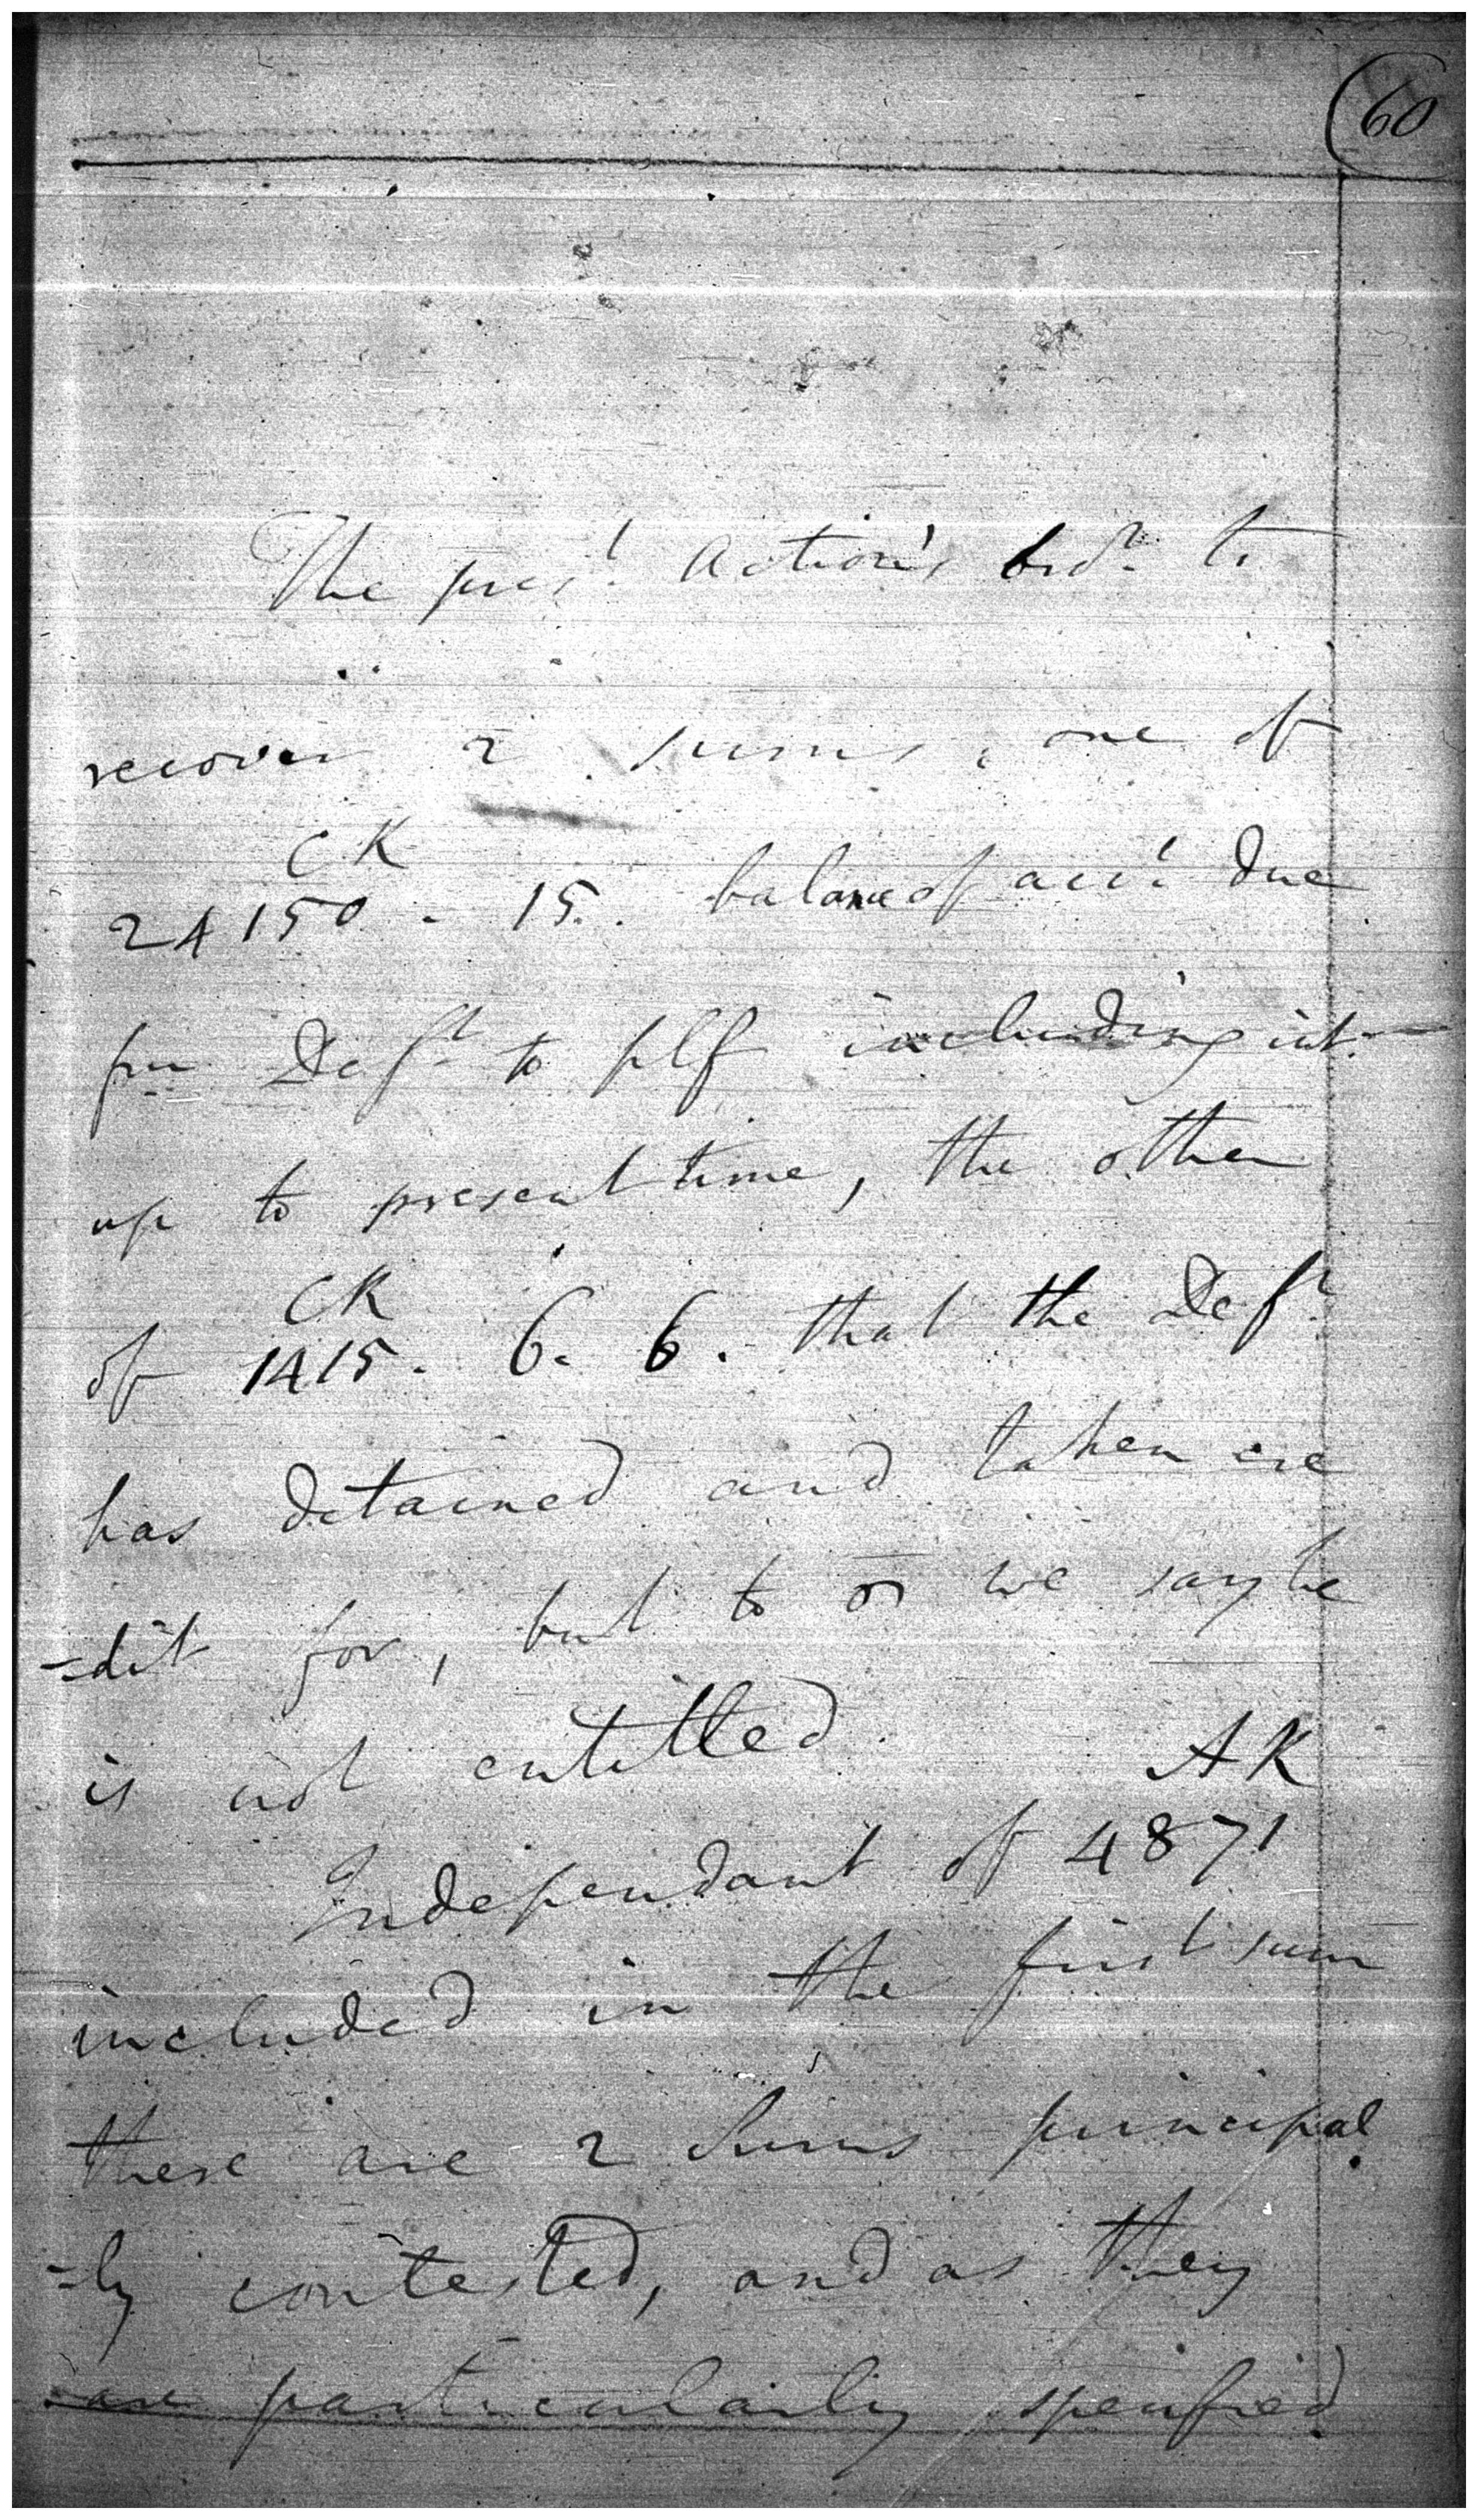 60
The pres.t action's bro.t to
recover 2 sums, one of
CK
24150 - 15. balance of acc.t due
fm Def.t to plf including int.
up to present time, the other
CK
of 1415. 6. 6. that the Def.t
has detained and taken cre
=dit for, but to we say he
is not entitled.
AK
Independant of 4871
included in the first sum
there are 2 Sums principal
=ly contested, and as they
are particularly specified